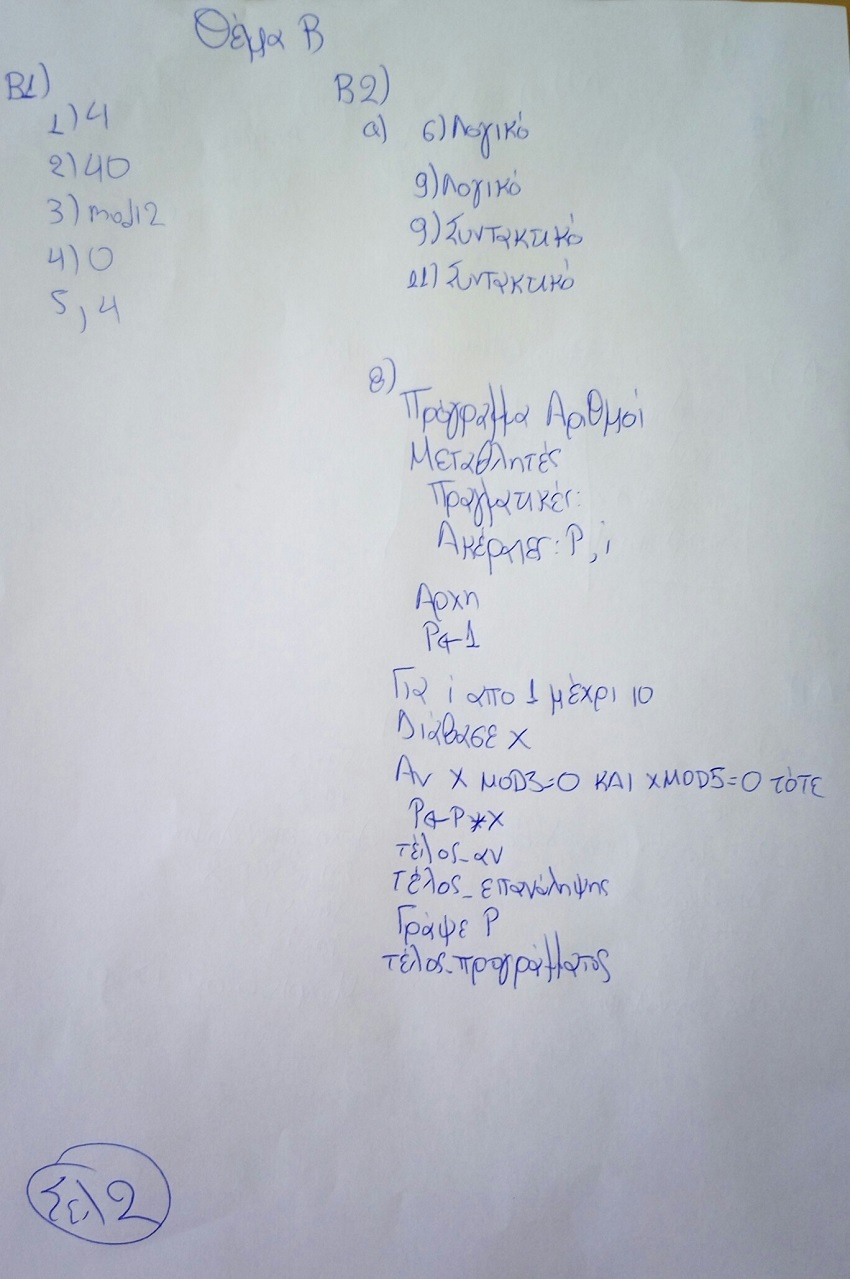 Θέμα Β
Β1)
1) 4
2) 40
3) mod 12
4) 0
5) 4
Β2)
α) 6) Λογικό
9) Λογικό
9) Συντακτικό
11) Συντακτικό
β)
Πρόγραμμα Αριθμοί
Μεταβλητές
Πραγματικές:
Ακέραιες: P, i
Αρχη
P←1
Για i απο 1 μέχρι 10
Διάβασε x
Αν x MOD3=0 ΚΑΙ xMOD5=0 τότε
P←P*x
τέλος_αν
Τέλος_επανάληψης
Γράψε P
τέλος_προγράμματος
Σελ 2